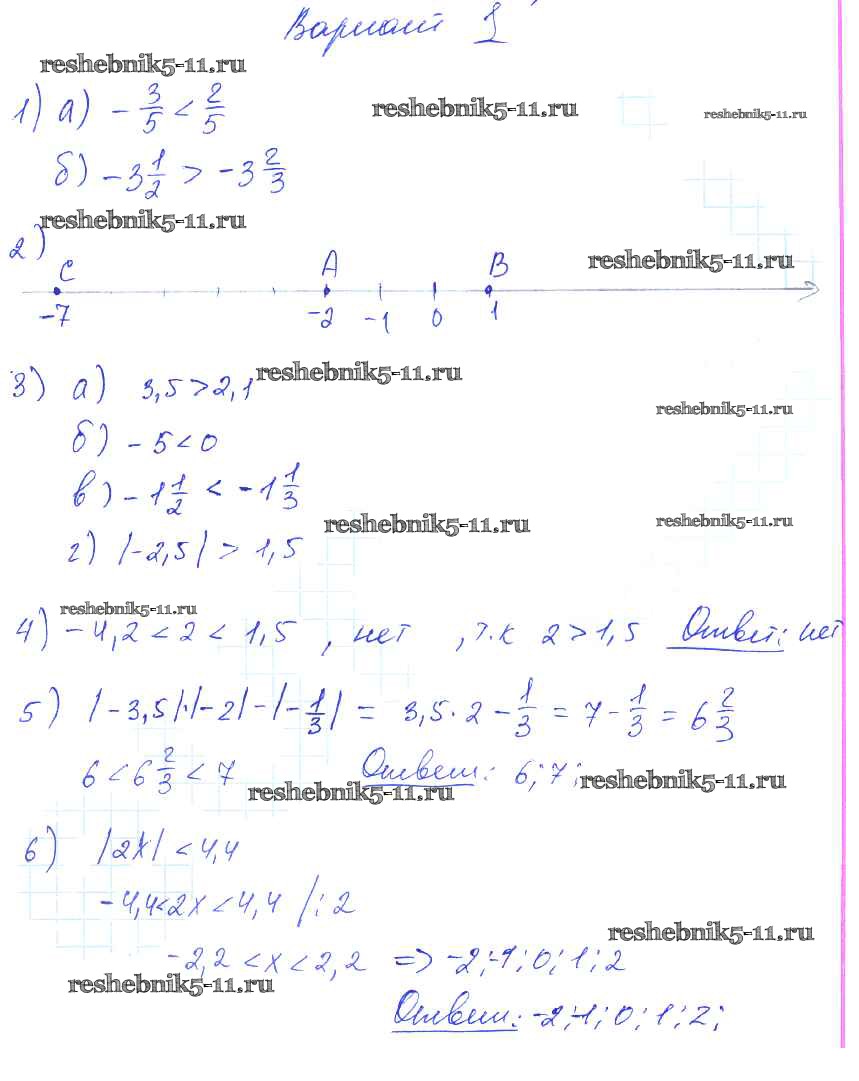 Вариант 1
reshebnik5-11.ru
1) а) - 3/5 < 2/5
reshebnik5-11.ru
reshebnik5-11.ru
б) -3 1/2 > -3 2/3
reshebnik5-11.ru
2)
C A B
reshebnik5-11.ru
-7 -2 -1 0 1
3) а) 3,5 > 2,1
reshebnik5-11.ru
reshebnik5-11.ru
б) -5 < 0
в) -1 1/2 < -1 1/3
reshebnik5-11.ru
reshebnik5-11.ru
г) |-2,5| > 1,5
reshebnik5-11.ru
4) -4,2 < 2 < 1,5 , нет , т.к 2 > 1,5 Ответ: нет
5) |-3,5|·|-2|-|-1/3| = 3,5·2 - 1/3 = 7 - 1/3 = 6 2/3
6 < 6 2/3 < 7 Ответ: 6; 7;
reshebnik5-11.ru
reshebnik5-11.ru
6) |2x| < 4,4
-4,4 < 2x < 4,4 /:2
reshebnik5-11.ru
-2,2 < x < 2,2 => -2; -1; 0; 1; 2
reshebnik5-11.ru
Ответ: -2; -1; 0; 1; 2;